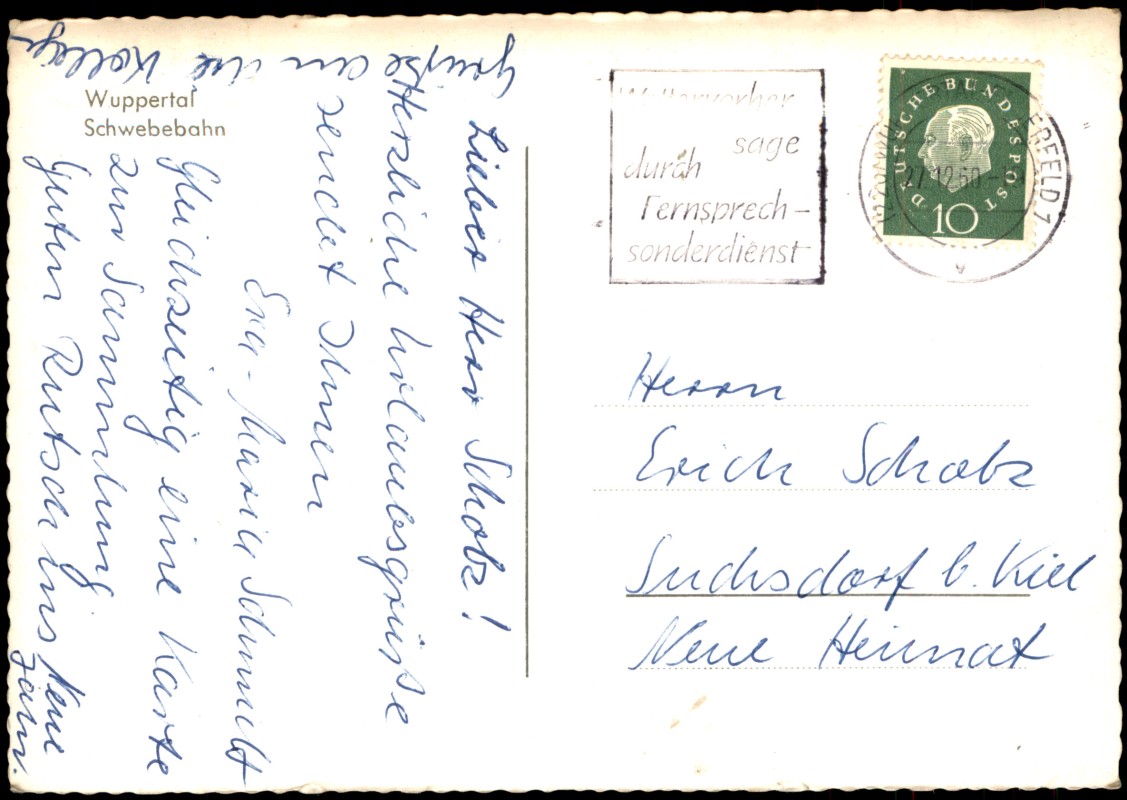 Wuppertal
Schwebebahn
Lieber Herr Schobz!
Herzliche Urlaubsgrüsse
sendet Ihnen
Eva-Maria Schmidt
Gleichzeitig eine Karte
zur Sammlung
Guten Rutsch ins Neue
Jahr.
Grüsse an die Kollegen
Wettervorher
sage
durch
Fernsprech-
sonderdienst
DEUTSCHE BUNDESPOST
10
27.12.60
ERFELD 1
Herrn
Erich Schobz
Suchsdorf b. Kiel
Neue Heimat